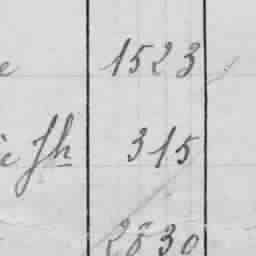 e 1523
è fh 315
2830